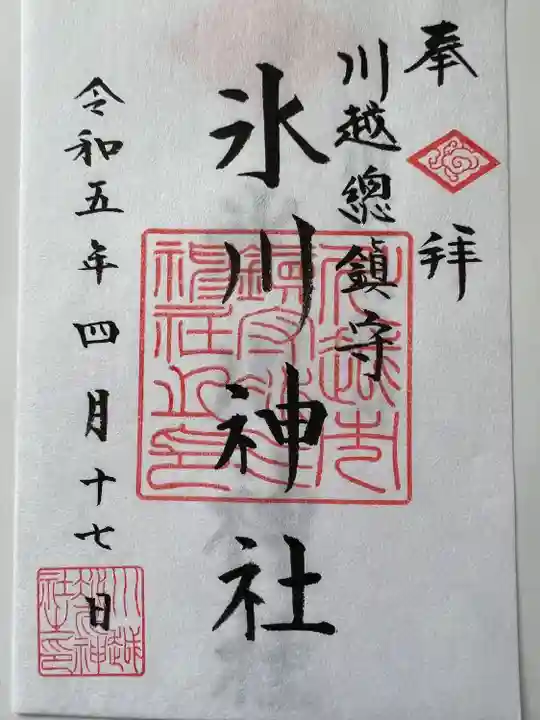 奉拝
川越總鎮守
氷川神社
令和五年四月十七日